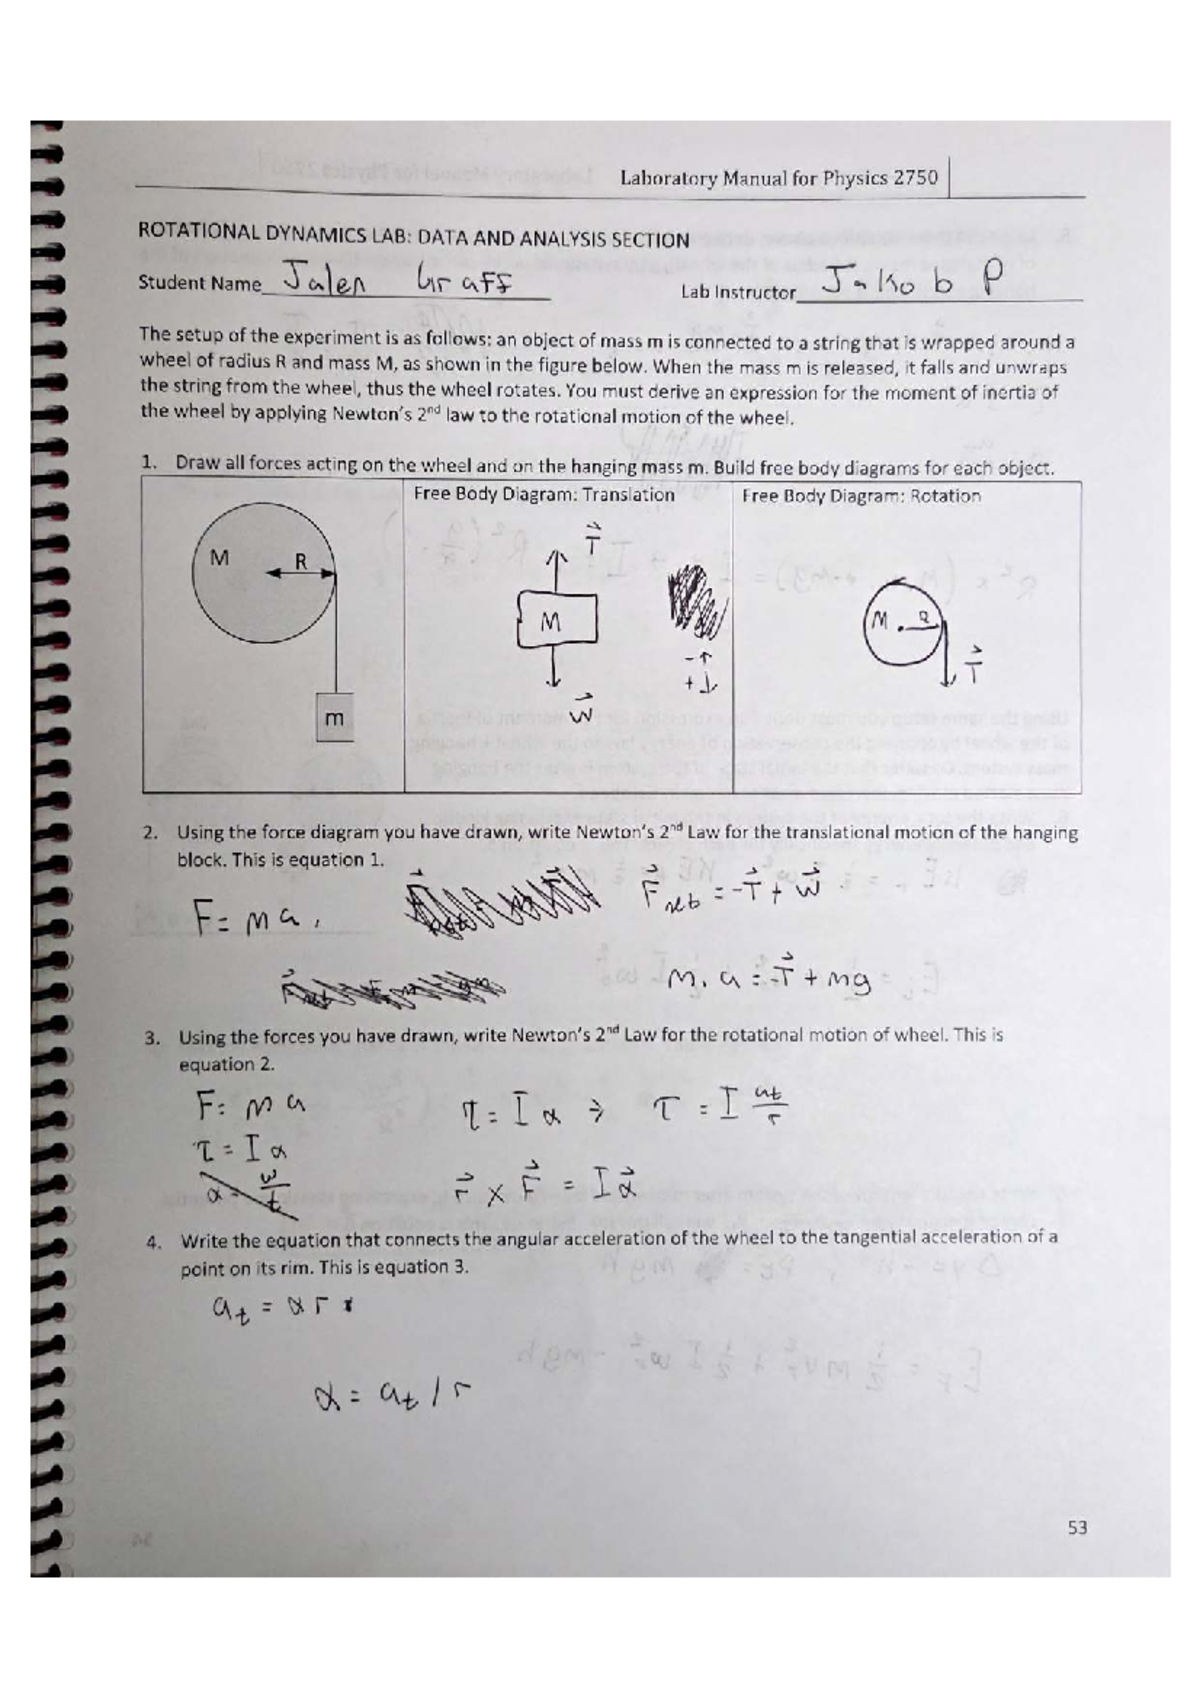 Laboratory Manual for Physics 2750
ROTATIONAL DYNAMICS LAB: DATA AND ANALYSIS SECTION
Student Name Jalen Graff
Lab Instructor Jakob P
The setup of the experiment is as follows: an object of mass m is connected to a string that is wrapped around a
wheel of radius R and mass M, as shown in the figure below. When the mass m is released, it falls and unwraps
the string from the wheel, thus the wheel rotates. You must derive an expression for the moment of inertia of
the wheel by applying Newton's 2nd law to the rotational motion of the wheel.
1. Draw all forces acting on the wheel and on the hanging mass m. Build free body diagrams for each object.
Free Body Diagram: Translation
Free Body Diagram: Rotation
M
R
m
T⃗
M
W⃗
- ↑
+ ↓
M . R
T⃗
2. Using the force diagram you have drawn, write Newton's 2nd Law for the translational motion of the hanging
block. This is equation 1.
F = ma,
F⃗net = -T⃗ + W⃗
m. a = -T⃗ + mg
3. Using the forces you have drawn, write Newton's 2nd Law for the rotational motion of wheel. This is
equation 2.
F = ma
τ = I α
α = w/t
τ = I α ⇒ τ = I at/r
r⃗ × F⃗ = I α⃗
4. Write the equation that connects the angular acceleration of the wheel to the tangential acceleration of a
point on its rim. This is equation 3.
at = α r
α = at / r
53